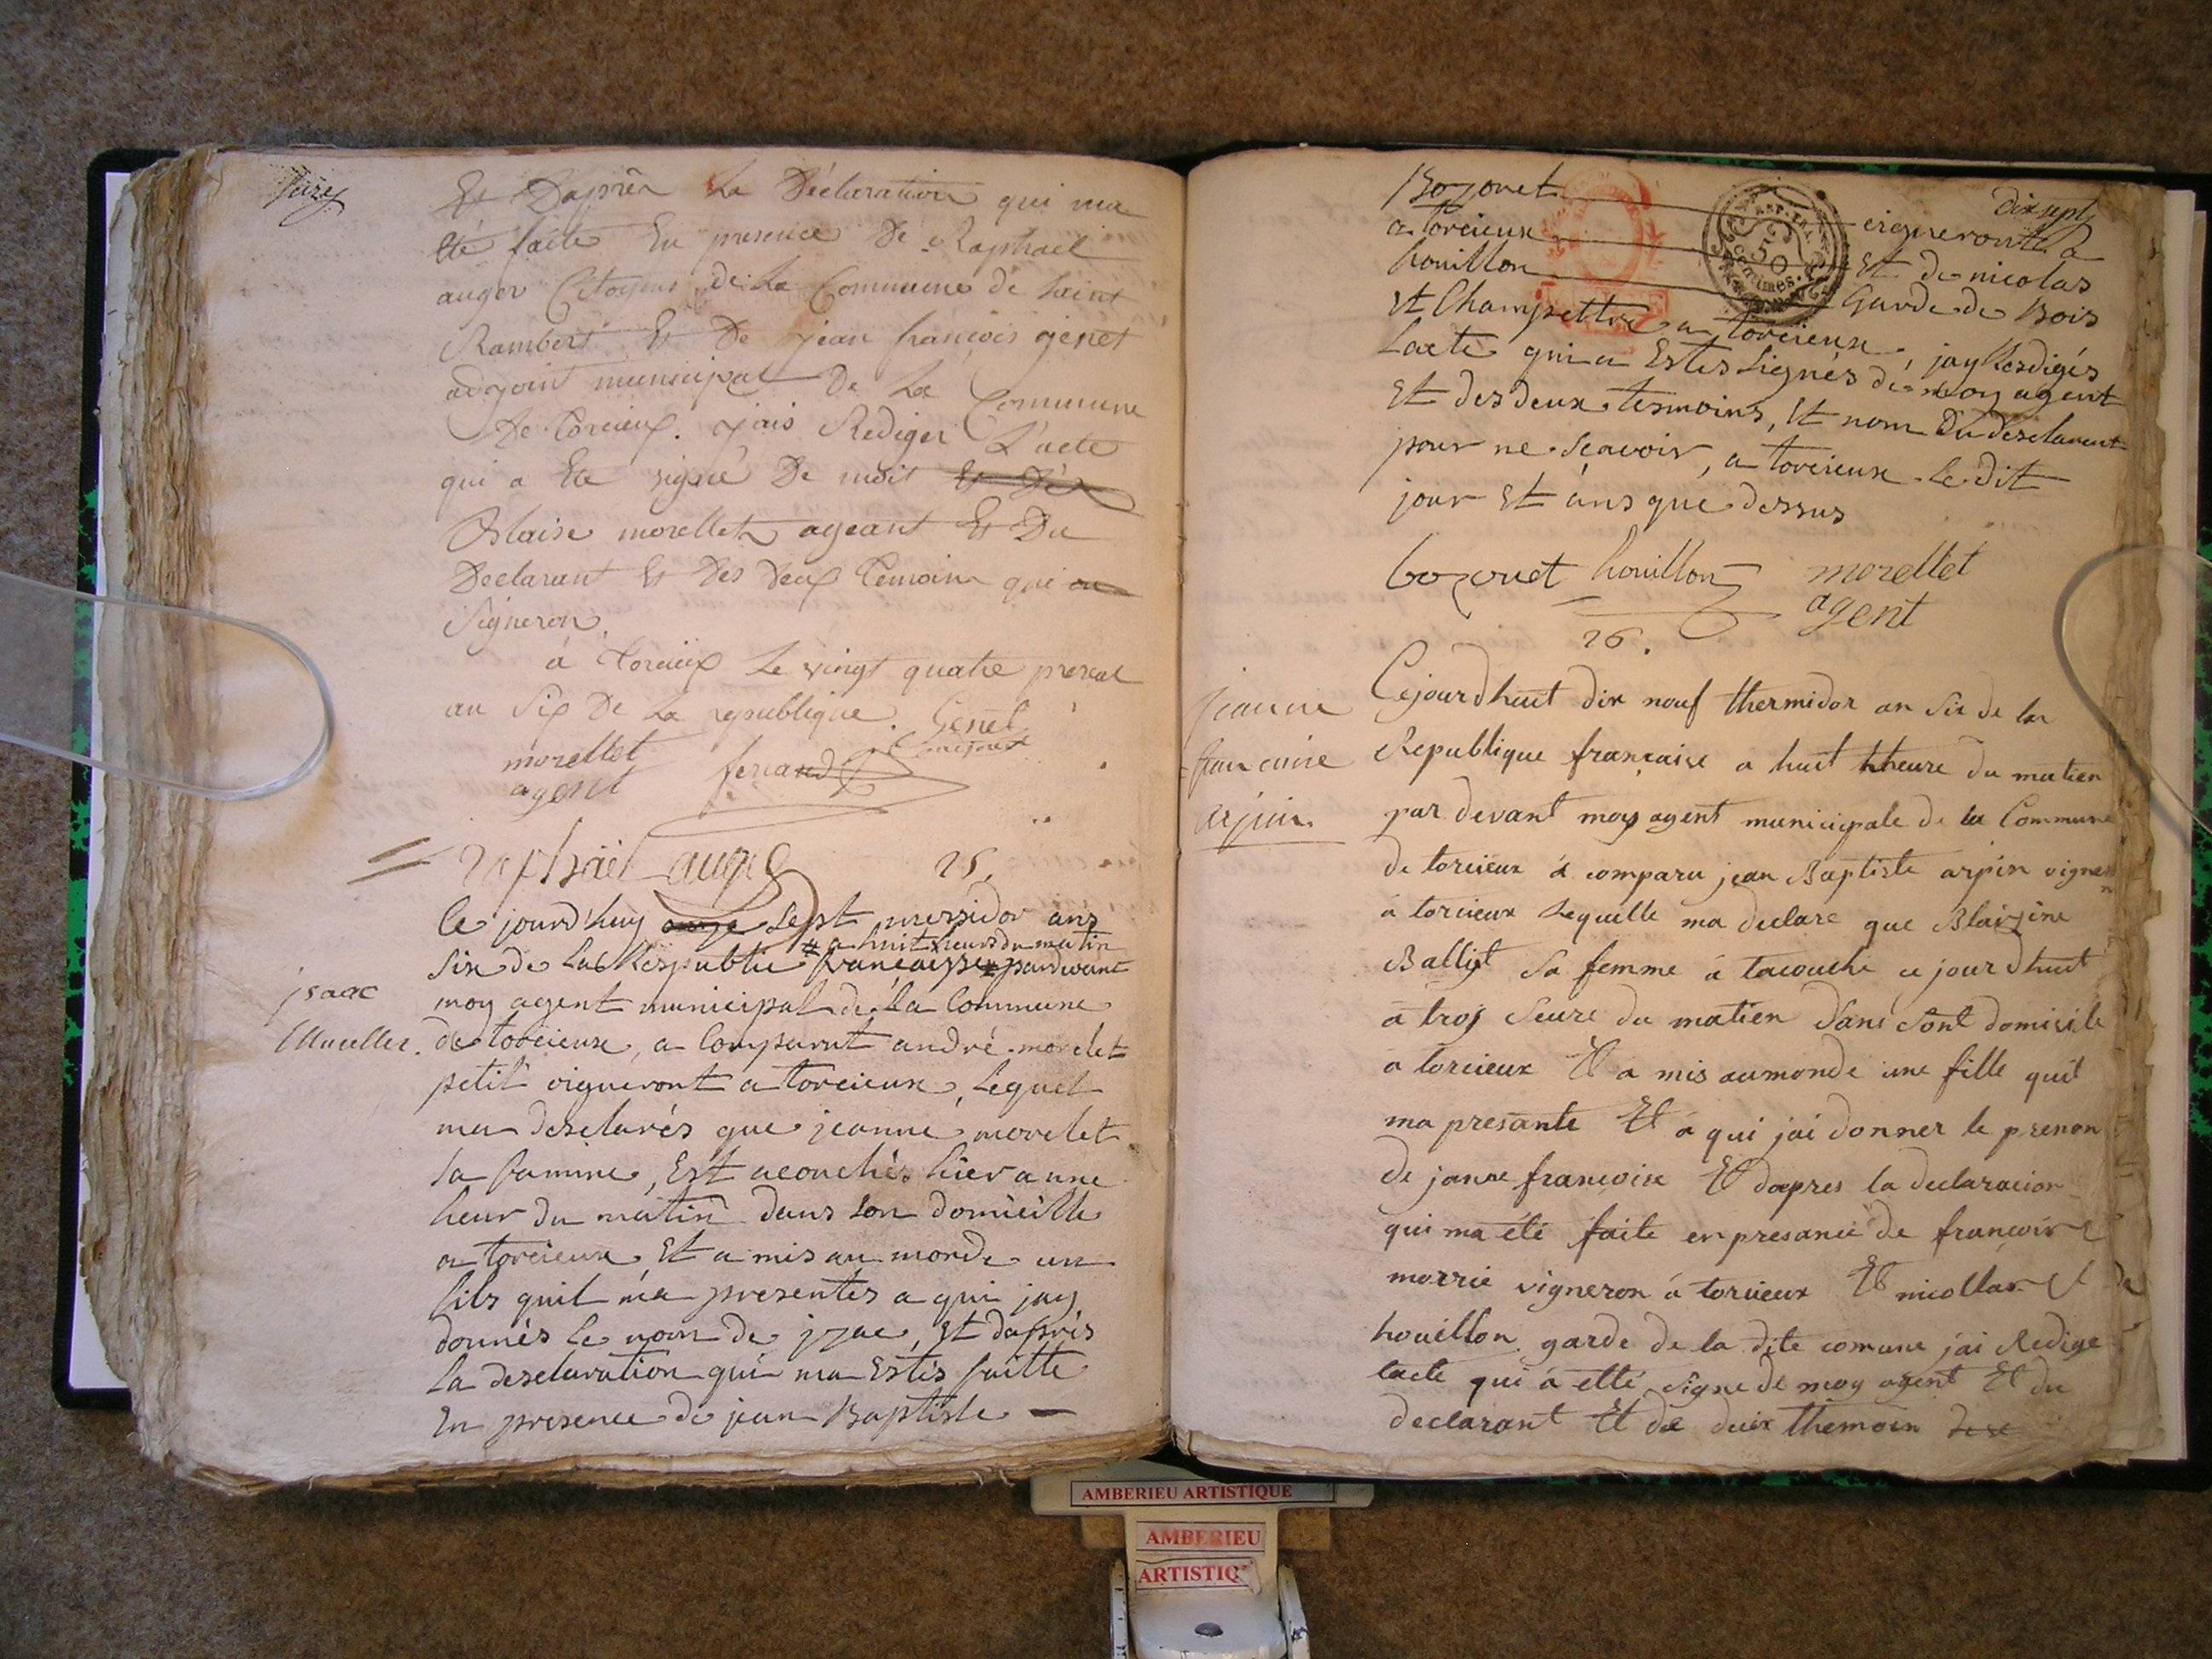 Seize
Et Daprès La Déclaration qui ma
été faite En presence De Raphael
auger Citoyens de La Commune de Saint
Rambert Et De jean françois genet
adjoint municipal De La Commune
De Torcieux. jais Rediger L'acte
qui a Eté signé De moit Et De
Blaise morellet ageant Et Du
Declarant Et Des Deux Temoins qui on
Signeron
à Torcieux Le vingt quatre prereal
an Six De La republique.
Genet
morellet
agent
ferrand
raphael auger
25.
isaac
Morellet.
Ce jourd'huy onze sept messidor ans
# a huit heurs du matin
Six de La Respublie francaisse # pardevant
moy agent municipal de La Commune
de torcieux, a Comparut andré morelet
petit vigneront a torcieux, Lequel
ma desclarés que jeanne morelet
sa famme, Est acouchés hier a une
heur du matin dans son domicille
a torcieux, Et a mis au monde un
fils quil ma presentes a qui jay
donnés Le nom de izac, Et dapprès
La desclaration qui ma Estés faitte
En presence de jean Baptiste
dix sept
Bozonet vigneront a
a torcieux Et de nicolas
houillon Garde de Bois
Et Champettre a torcieux, jay Resdigés
Lacte qui a Estes Signés de moy agent
Et des deux tesmoins, Et nom du desclarent
pour ne Scavoir, a torcieux Le dit
jour Et ans que dessus
REP. FRA.
50
Centimes.
bozonet houillon morellet
agent
26.
jeanne
francoise
arpin.
Cejourdhuit dix nouf thermidor an Six de la
Republique française a huit hheure du matien
par devant moy agent municipale de la Commune
de torcieux à comparu jean Baptiste arpin vigneron
à torcieux Lequelle ma declare que Blaizine
Ballyt Sa femme à tacouché ce jourdhuit
à troj Seure du matien dans sont domicile
à torcieux Et a mis aumonde une fille quil
ma presante Et à qui jai donner le prenon
de janne francoise Et dapres la declaracion
qui ma été faite en presance de francois
morrie vigneron à torcieux Et nicollas
houillon garde de la dite comune jai Redige
lacte qui à etté signe de moy agent Et du
declarant Et de deux themoin